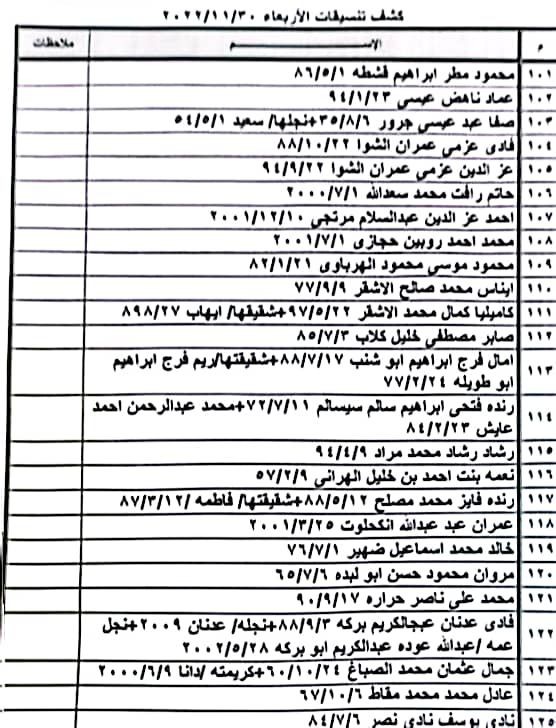 كشف تنسيقات الأربعاء ٢٠٢٢/١١/٣٠
م الاســـــــم ملاحظات
١٠١ محمود مطر ابراهيم قشطه ٨٦/٥/١
١٠٢ عماد ناهض عيسى ٩٤/١/٢٣
١٠٣ صفا عبد عيسى جرور ٣٥/٨/٦+نجلها/ سعيد ٥٤/٥/١
١٠٤ فادى عزمي عمران الشوا ٨٨/١٠/٢٢
١٠٥ عز الدين عزمي عمران الشوا ٩٤/٩/٢٢
١٠٦ حاتم رافت محمد سعدالله ٢٠٠٠/٧/١
١٠٧ احمد عز الدين عبدالسلام مرتجي ٢٠٠١/١٢/١٠
١٠٨ محمد احمد روبين حجازى ٢٠٠١/٧/١
١٠٩ محمود موسي محمود الهرباوى ٨٢/١/٢١
١١٠ ايناس محمد صالح الاشقر ٧٧/٩/٩
١١١ كاميليا كمال محمد الاشقر ٩٧/٥/٢٢+شقيقها/ ايهاب ٨٩٨/٢٧
١١٢ صابر مصطفي خليل كلاب ٨٥/٧/٣
١١٣ امال فرج ابراهيم ابو شنب ٨٨/٧/١٧+شقيقتها/ريم فرج ابراهيم
ابو طويله ٧٧/٢/٢٤
١١٤ رنده فتحى ابراهيم سالم سيسالم ٧٢/٧/١١+محمد عبدالرحمن احمد
عايش ٨٤/٢/٢٣
١١٥ رشاد رشاد محمد مراد ٩٤/٤/٩
١١٦ نعمه بنت احمد بن خليل الهراني ٥٧/٢/٩
١١٧ رنده فايز محمد مصلح ٨٨/٥/١٢+شقيقتها/ فاطمه /٨٧/٣/١٢
١١٨ عمران عبد عبدالله انكحلوت ٢٠٠١/٣/٢٥
١١٩ خالد محمد اسماعيل ضهير ٧٦/٧/١
١٢٠ مروان محمود حسن ابو لبده ٦٥/٧/٦
١٢١ محمد على ناصر حراره ٩٠/٩/١٧
١٢٢ فادى عدنان عبجالكريم بركه ٨٨/٩/٣+نجله/ عدنان ٢٠٠٩+نجل
عمه /عبدالله عوده عبدالكريم ابو بركه ٢٠٠٢/٥/٢٨
١٢٣ جمال عثمان محمد الصباغ ٦٠/١٠/٢٤+كريمته /دانا ٢٠٠٠/٦/٩
١٢٤ عادل محمد محمد مقاط ٦٧/١٠/٦
١٢٥ نادى يوسف نادى نصر ٨٤/٧/٦